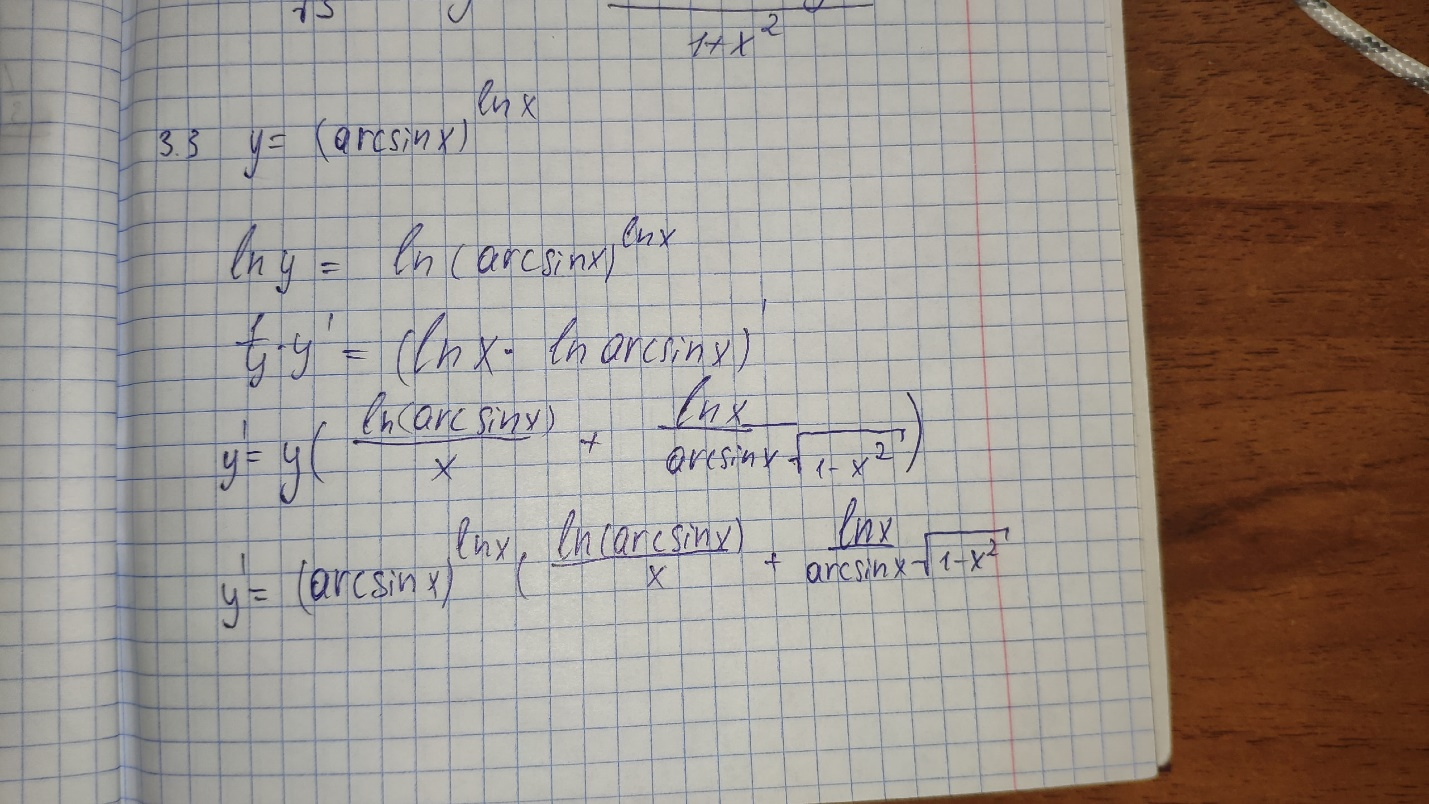 1+x²
3.3 y = (arcsinx)^lnx
ln y = ln(arcsinx)^lnx
1/y · y' = (lnx · ln arcsinx)'
y' = y( ln(arcsinx)/x + lnx/(arcsinx√1-x²) )
y' = (arcsinx)^lnx ( ln(arcsinx)/x + lnx/(arcsinx√1-x²)